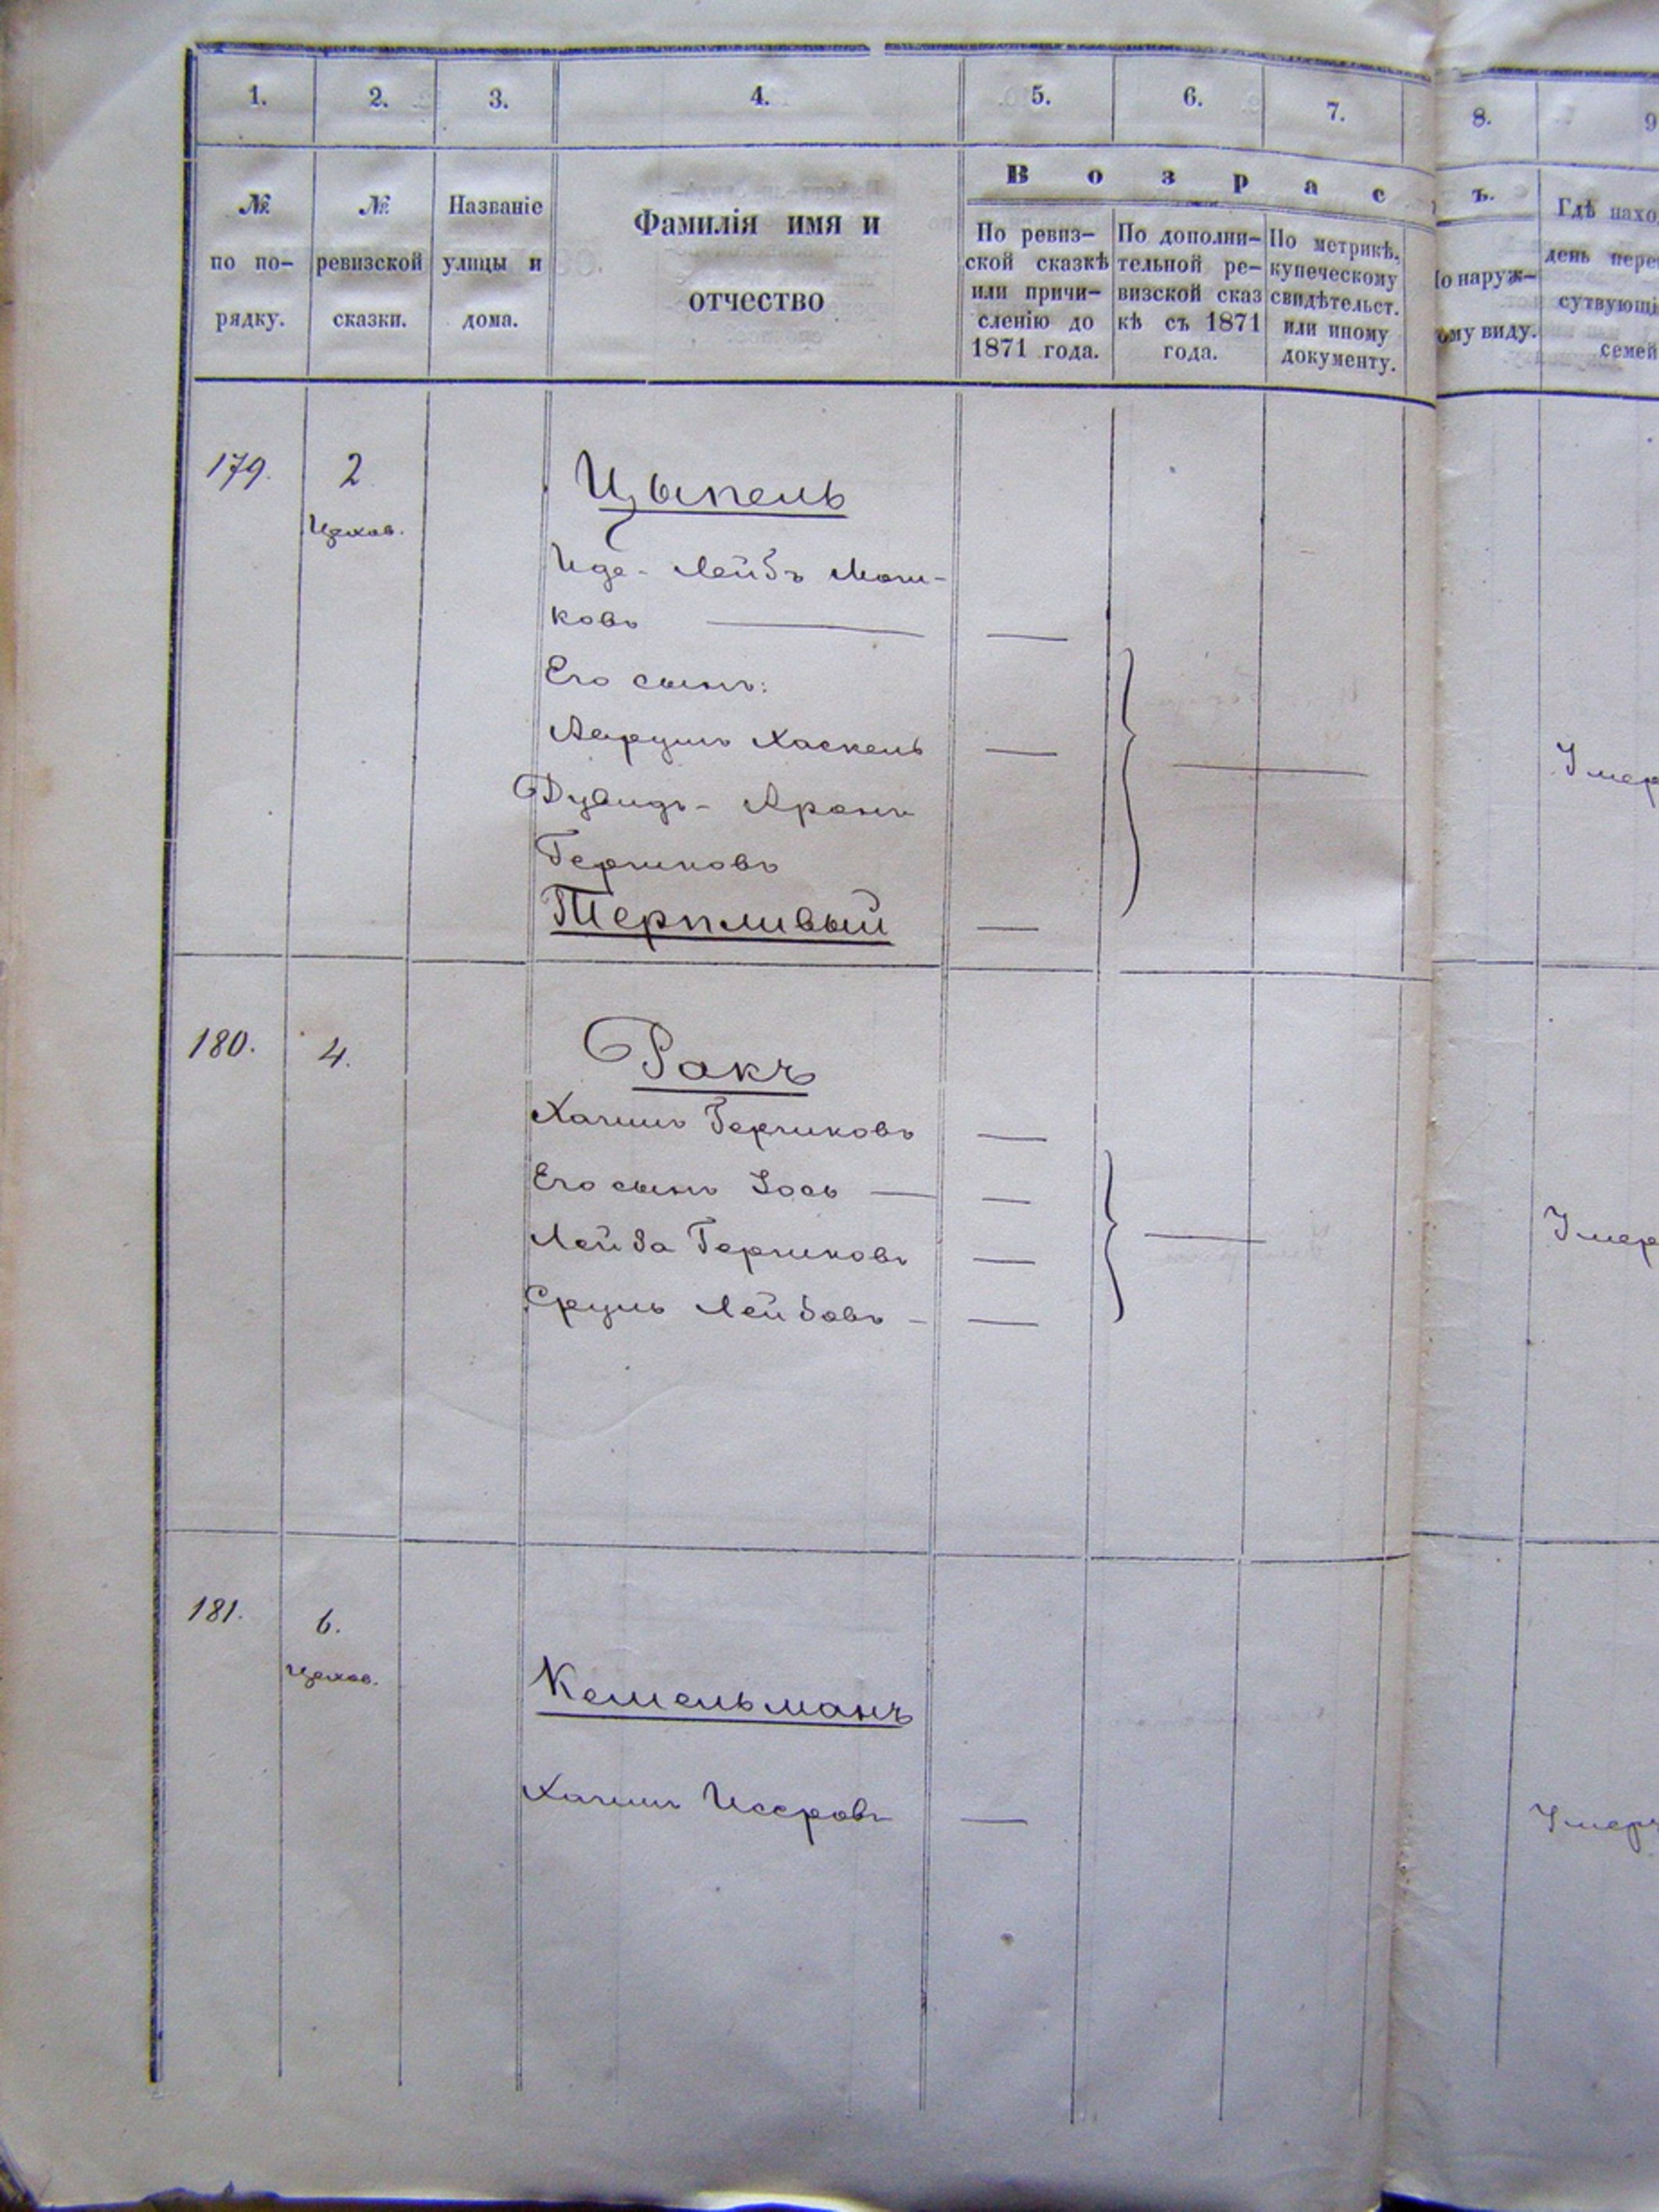 1. 2. 3. 4. 5. 6. 7. 8. 9
№ по по- рядку.
№ ревизской сказки.
Названіе улицы и дома.
Фамилія имя и
отчество
Возрас
ъ.
По ревиз-
ской сказкѣ
или причи-
сленію до
1871 года.
По дополни-
тельной ре-
визской сказ
кѣ съ 1871
года.
По метрикѣ,
купеческому
свидѣтельст.
или иному
документу.
о наруж-
ому виду.
Гдѣ нахо
день пере
сутвующі
семей
179. 2 Цыпель
Цехов.
Иде- Лейбъ Мош-
ковъ —
Его сынъ:
Хаскель —
Дувидъ- Аронъ
Гершковъ
Терпливый —
Умер
180. 4. Ракъ
Хаимъ Гершковъ —
Его сынъ Іось — —
Лейба Гершковъ —
Сруль Лейбовъ - —
Умер
181. 6. Кешельманъ
Цехов.
Хаимъ Исеровъ —
Умеръ